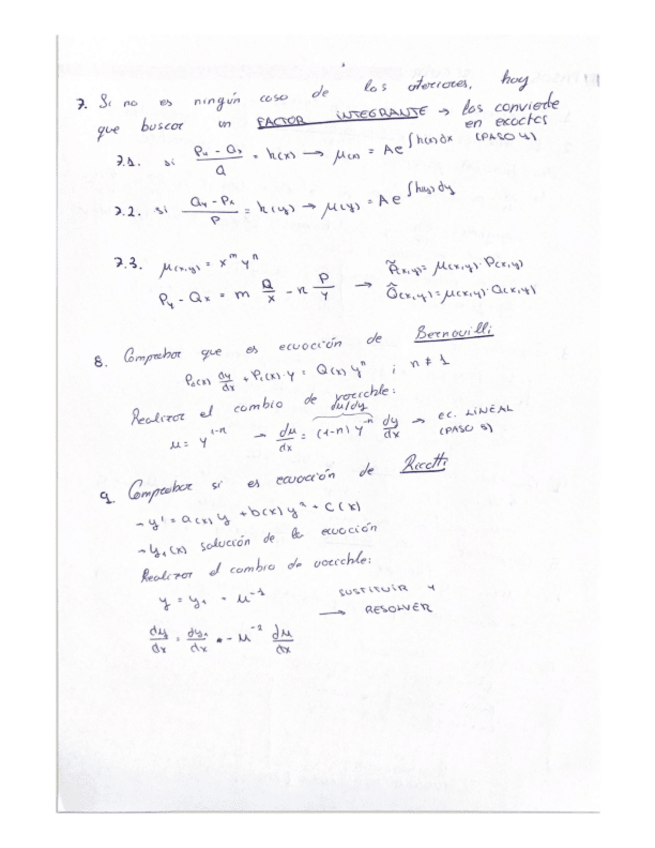 7. Si no es ningún caso de los anteriores, hay
que buscar un FACTOR INTEGRANTE → los convierte
en exactas (PASO 4)
7.1. si (Py - Qx)/Q = h(x) → μ(x) = A e^∫h(x)dx
7.2. si (Qx - Py)/P = h(y) → μ(y) = A e^∫h(y)dy
7.3. μ(x,y) = x^m y^n
Py - Qx = m Q/x - n P/y → P̂(x,y) = μ(x,y)·P(x,y)
Q̂(x,y) = μ(x,y)·Q(x,y)
8. Comprobar que es ecuación de Bernouilli
P₀(x) dy/dx + P₁(x)·y = Q(x) y^n ; n ≠ 1
Realizar el cambio de variable:
du/dy
μ = y^(1-n) → dμ/dx = (1-n) y^-n dy/dx → ec. LINEAL
(PASO 5)
9. Comprobar si es ecuación de Ricatti
- y' = a(x) y + b(x) y² + c(x)
- y₁(x) solución de la ecuación
Realizar el cambio de variable:
y = y₁ + μ^-1 SUSTITUIR Y
→ RESOLVER
dy/dx = dy₁/dx + - μ^-2 dμ/dx